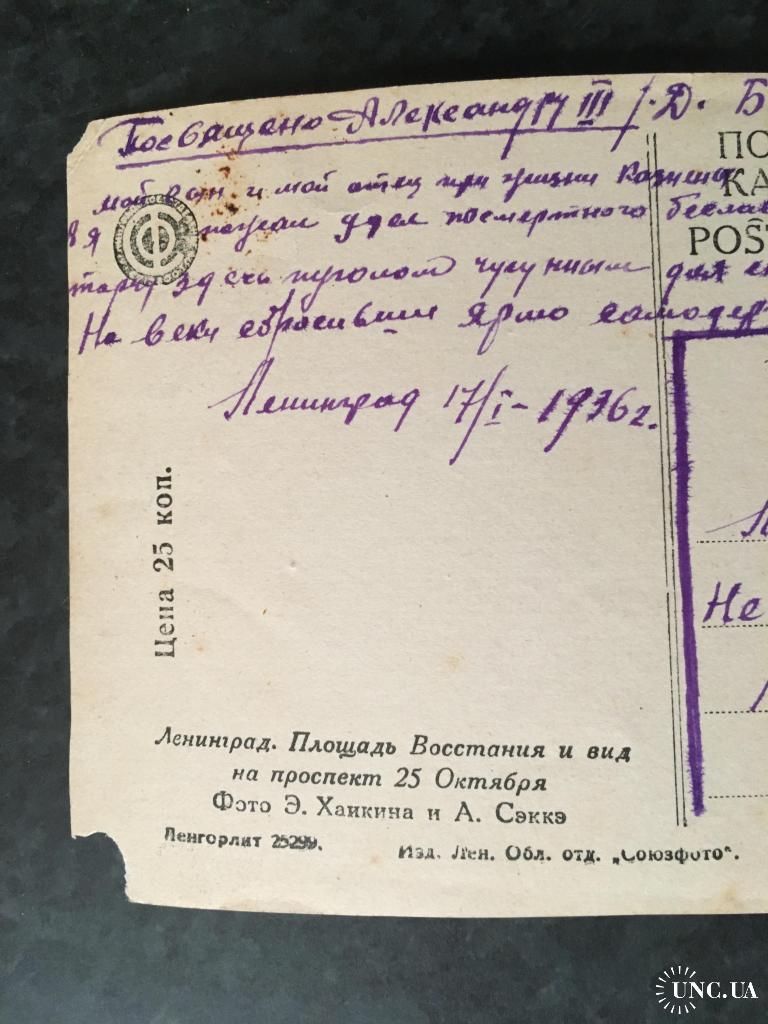 Посвящено Александру III /. Д. Б
мой сын и мой отец при жизни казнены
в я пожал удел посмертного бесслав
торчу здесь пугалом чугунным для
На веки сбросивши ярмо самодер
Ленинград 17/I - 1936 г.
ПО
КА
POST
Не
Цена 25 коп.
Ленинград. Площадь Восстания и вид
на проспект 25 Октября
Фото Э. Хаикина и А. Сэккэ
Ленгорлит 25299.
Изд. Лен. Обл. отд. „Союзфото“.
UNC.UA